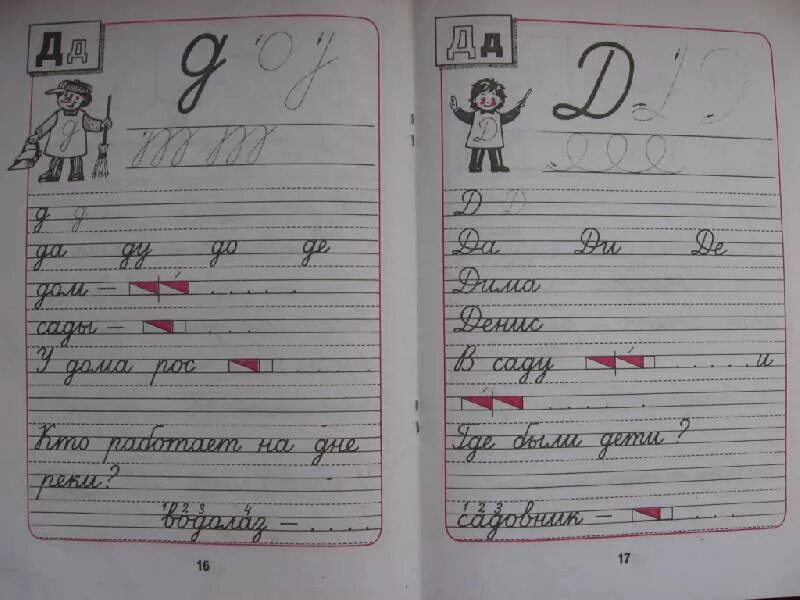 Дд
д о
д д
да ду до де
дом –
сады –
У дома рос
Кто работает на дне
реки?
1 2 3 4
водолаз – . . . .
16
Дд
Д
Д
Д Д
Да Ди Де
Дима
Денис
В саду . . . . . и
Где были дети?
1 2 3
садовник –
17